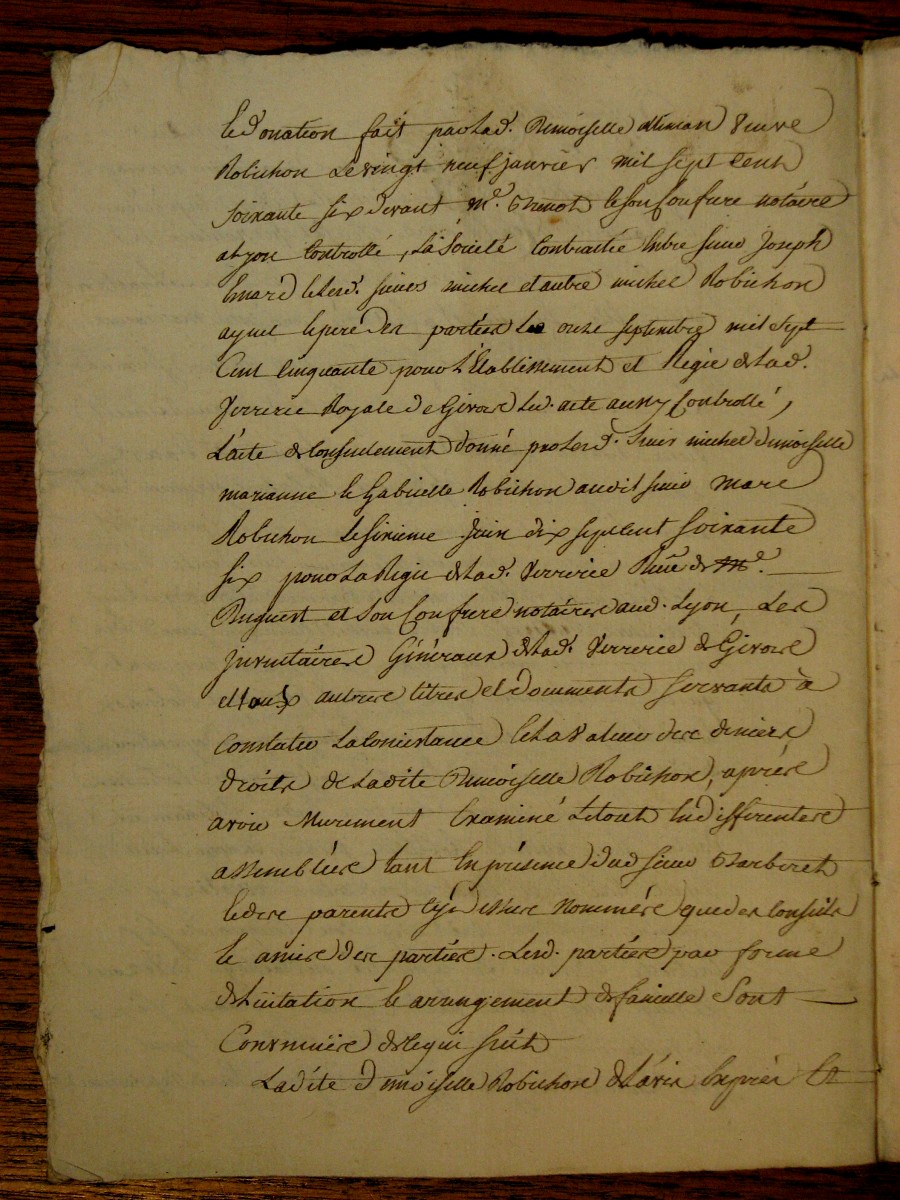 et donation fait par lad. Demoiselle aleman veuve
Robichon le vingt neuf janvier mil sept cent
soixante six devant me. Thenot et son confrere notaire
a Lyon controllé, la societé contractée entre sieur Joseph
Esmard et lesd. sieurs michel et autre michel Robichon
ayeul et pere des parties le onze septembre mil sept
cent cinquante pour l'Etablissement et Regie de lad.
verrerie Royale de Givors led. acte aussy controllé,
L'acte de consentement donné par lesd. sieur michel demoiselle
marianne et Gabrielle Robichon audit sieur marc
Robichon le sixieme juin dix sept cent soixante
six pour la Regie de lad. verrerie Reçu de Me.
et son confrere notaires aud. Lyon, Les
jnventaires Généraux de lad. verrerie de Givors
et tous autres titres et documents servants à
constater la consistance et la valeur des deniers
droits de ladite Demoiselle Robichon, après
avoir murement examiné le tout en differentes
assemblées tant en présence dud sieur Charberet
et des parents cy dessus nommés que des conseils
et amis des parties. Lesd. parties par forme
de licitation et arrangement de famille sont
convenuës de ce qui suit
Ladite demoiselle Robichon de l'avis exprès et